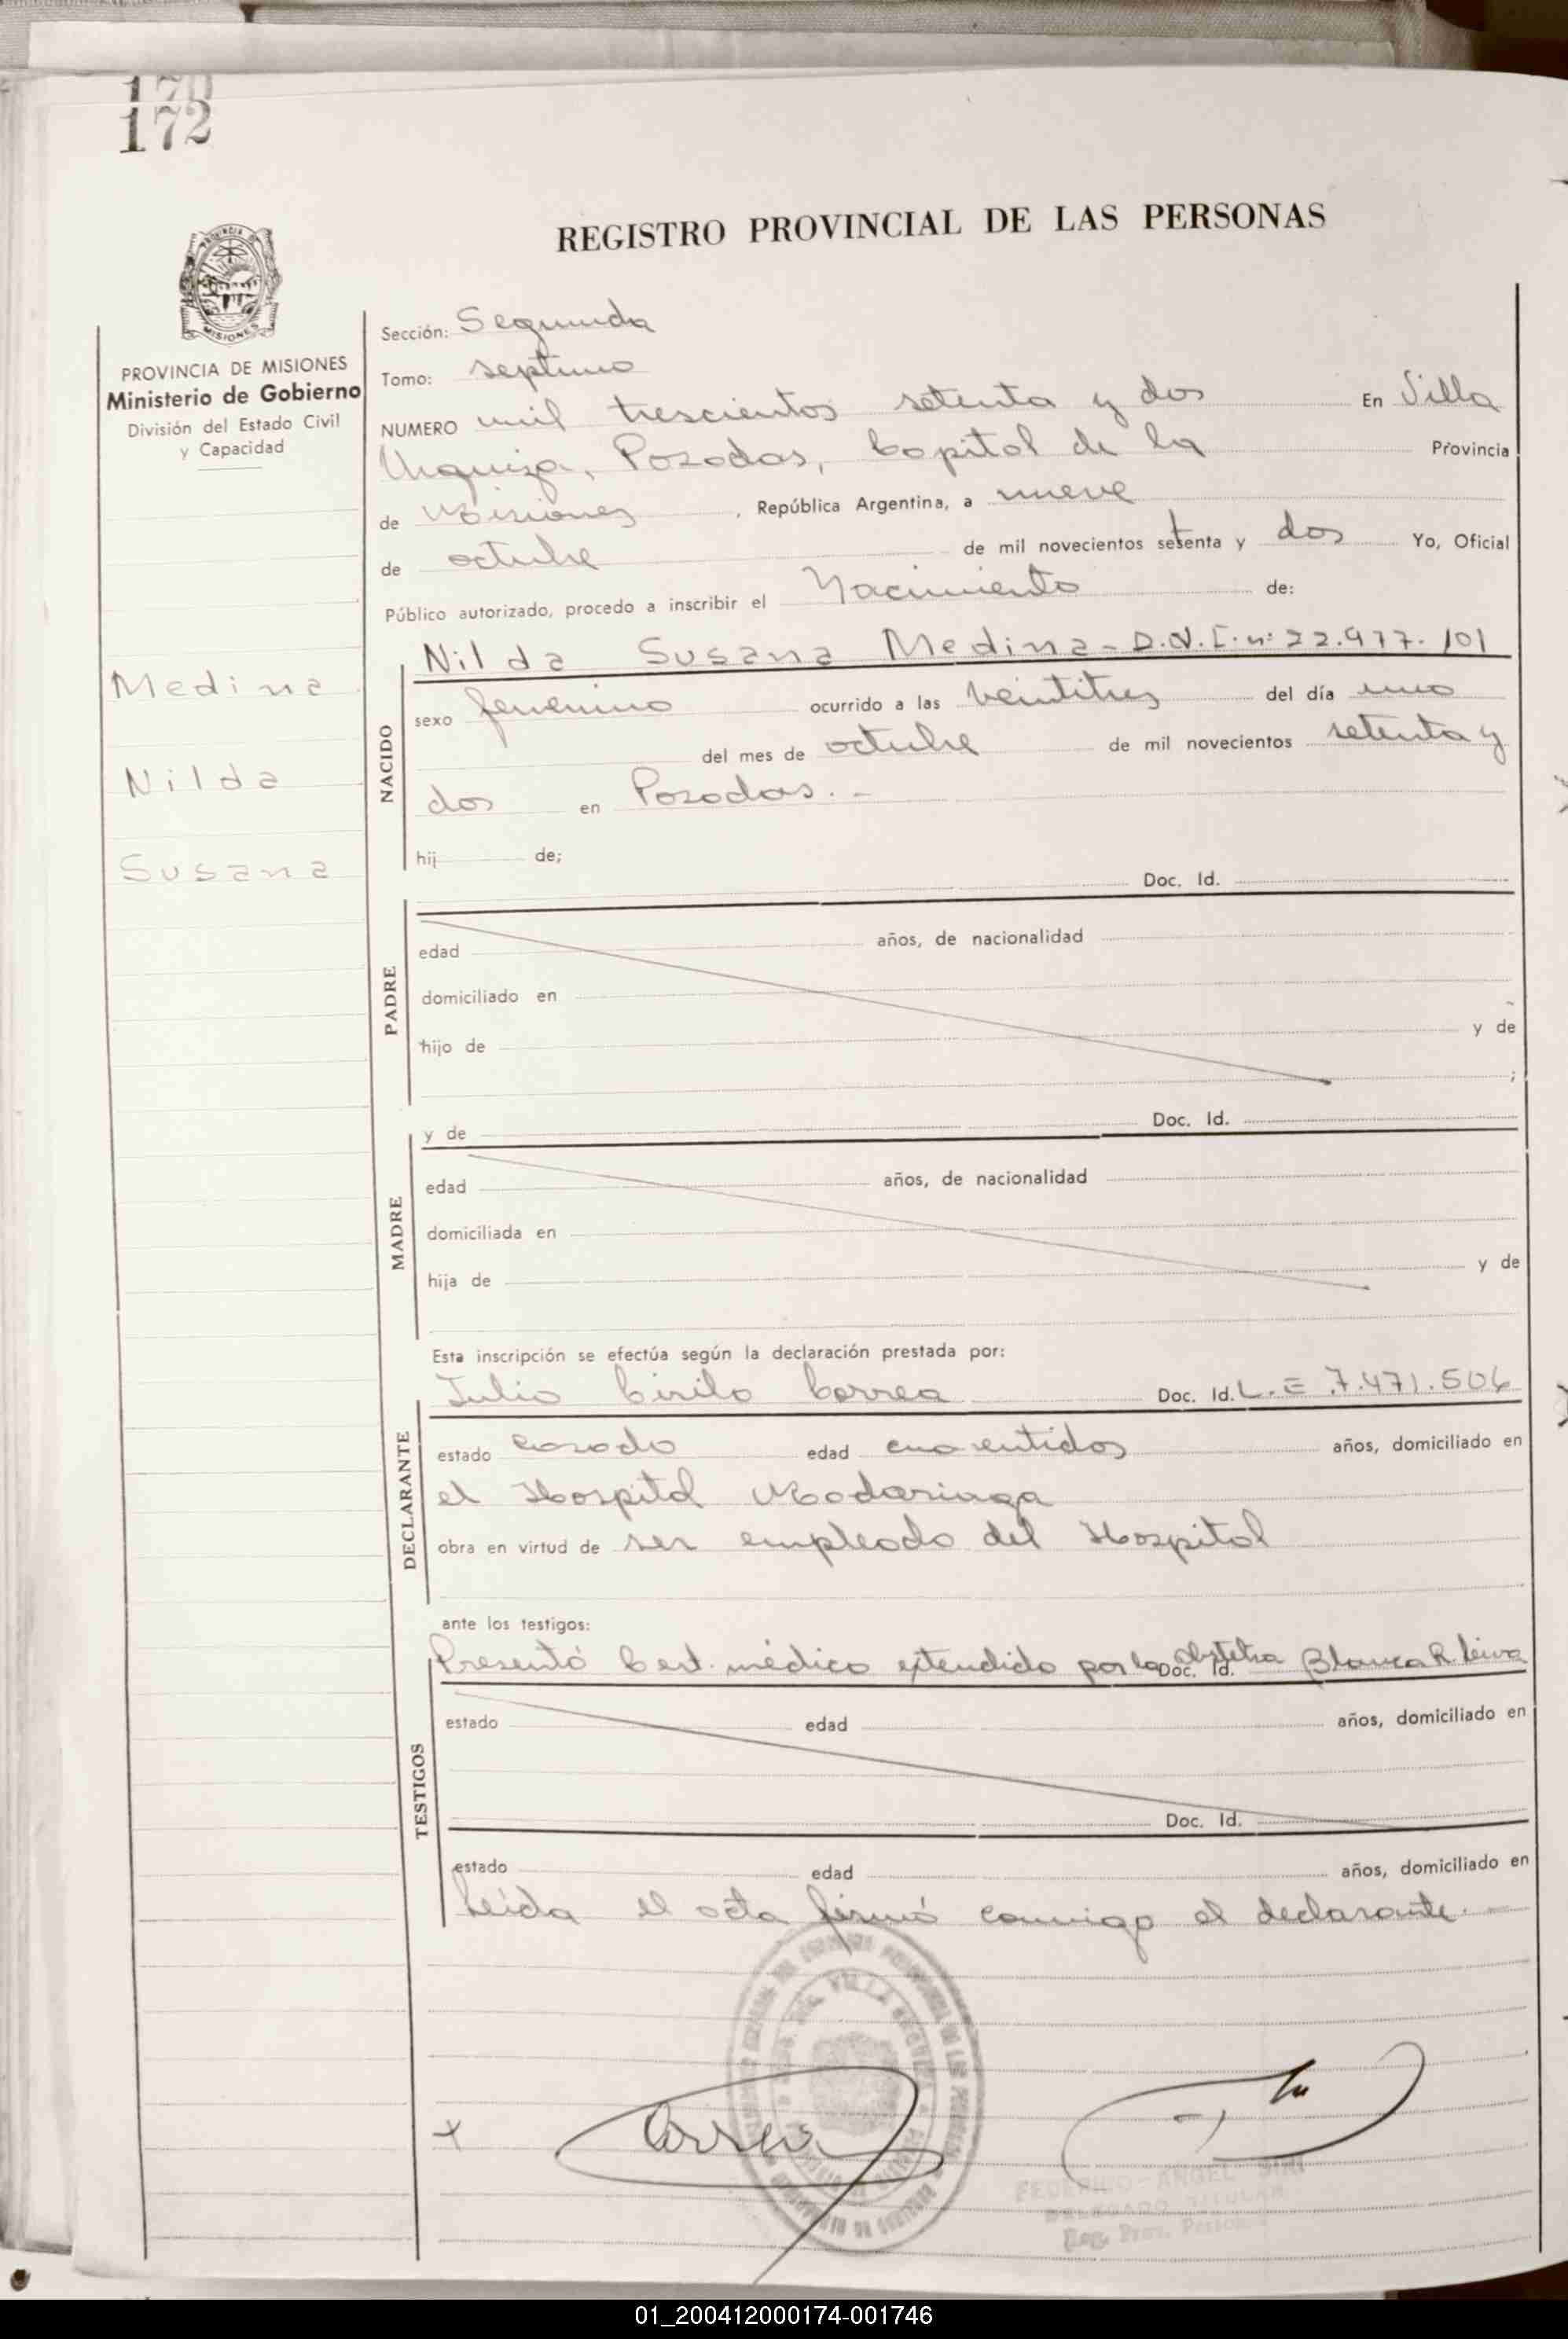 170
172
REGISTRO PROVINCIAL DE LAS PERSONAS
MISIONES
PROVINCIA DE MISIONES
Ministerio de Gobierno
División del Estado Civil
y Capacidad
Medina
Nilda
Susana
Sección: Segunda
Tomo: septimo
NUMERO mil trescientos setenta y dos En Villa
Urquiza, Posadas, Capital de la Provincia
de Misiones, República Argentina, a nueve
de octubre de mil novecientos setenta y dos Yo, Oficial
Público autorizado, procedo a inscribir el Nacimiento de:
Nilda Susana Medina - D.N.I. n: 22.977.101
NACIDO
sexo femenino ocurrido a las veintitres del día uno
del mes de octubre de mil novecientos setenta y
dos en Posadas.-
hij de;
Doc. Id.
PADRE
edad años, de nacionalidad
domiciliado en
hijo de y de
;
y de Doc. Id.
MADRE
edad años, de nacionalidad
domiciliada en
hija de y de
Esta inscripción se efectúa según la declaración prestada por:
Julio Cirilo Correa Doc. Id. L.E 7.471.506
DECLARANTE
estado casado edad cuarentidos años, domiciliado en
el Hospital Madariaga
obra en virtud de ser empleado del Hospital
ante los testigos:
Presentó Cert. médico extendido por la Doc. Id. obstetra Blanca R. Leiva
TESTIGOS
estado edad años, domiciliado en
Doc. Id.
estado edad años, domiciliado en
Leida el acta firmó conmigo el declarante.-
VILLA URQUIZA
Correa
FEDERICO ANGEL
DELEGADO TITULAR
Reg. Prov.
01_200412000174-001746